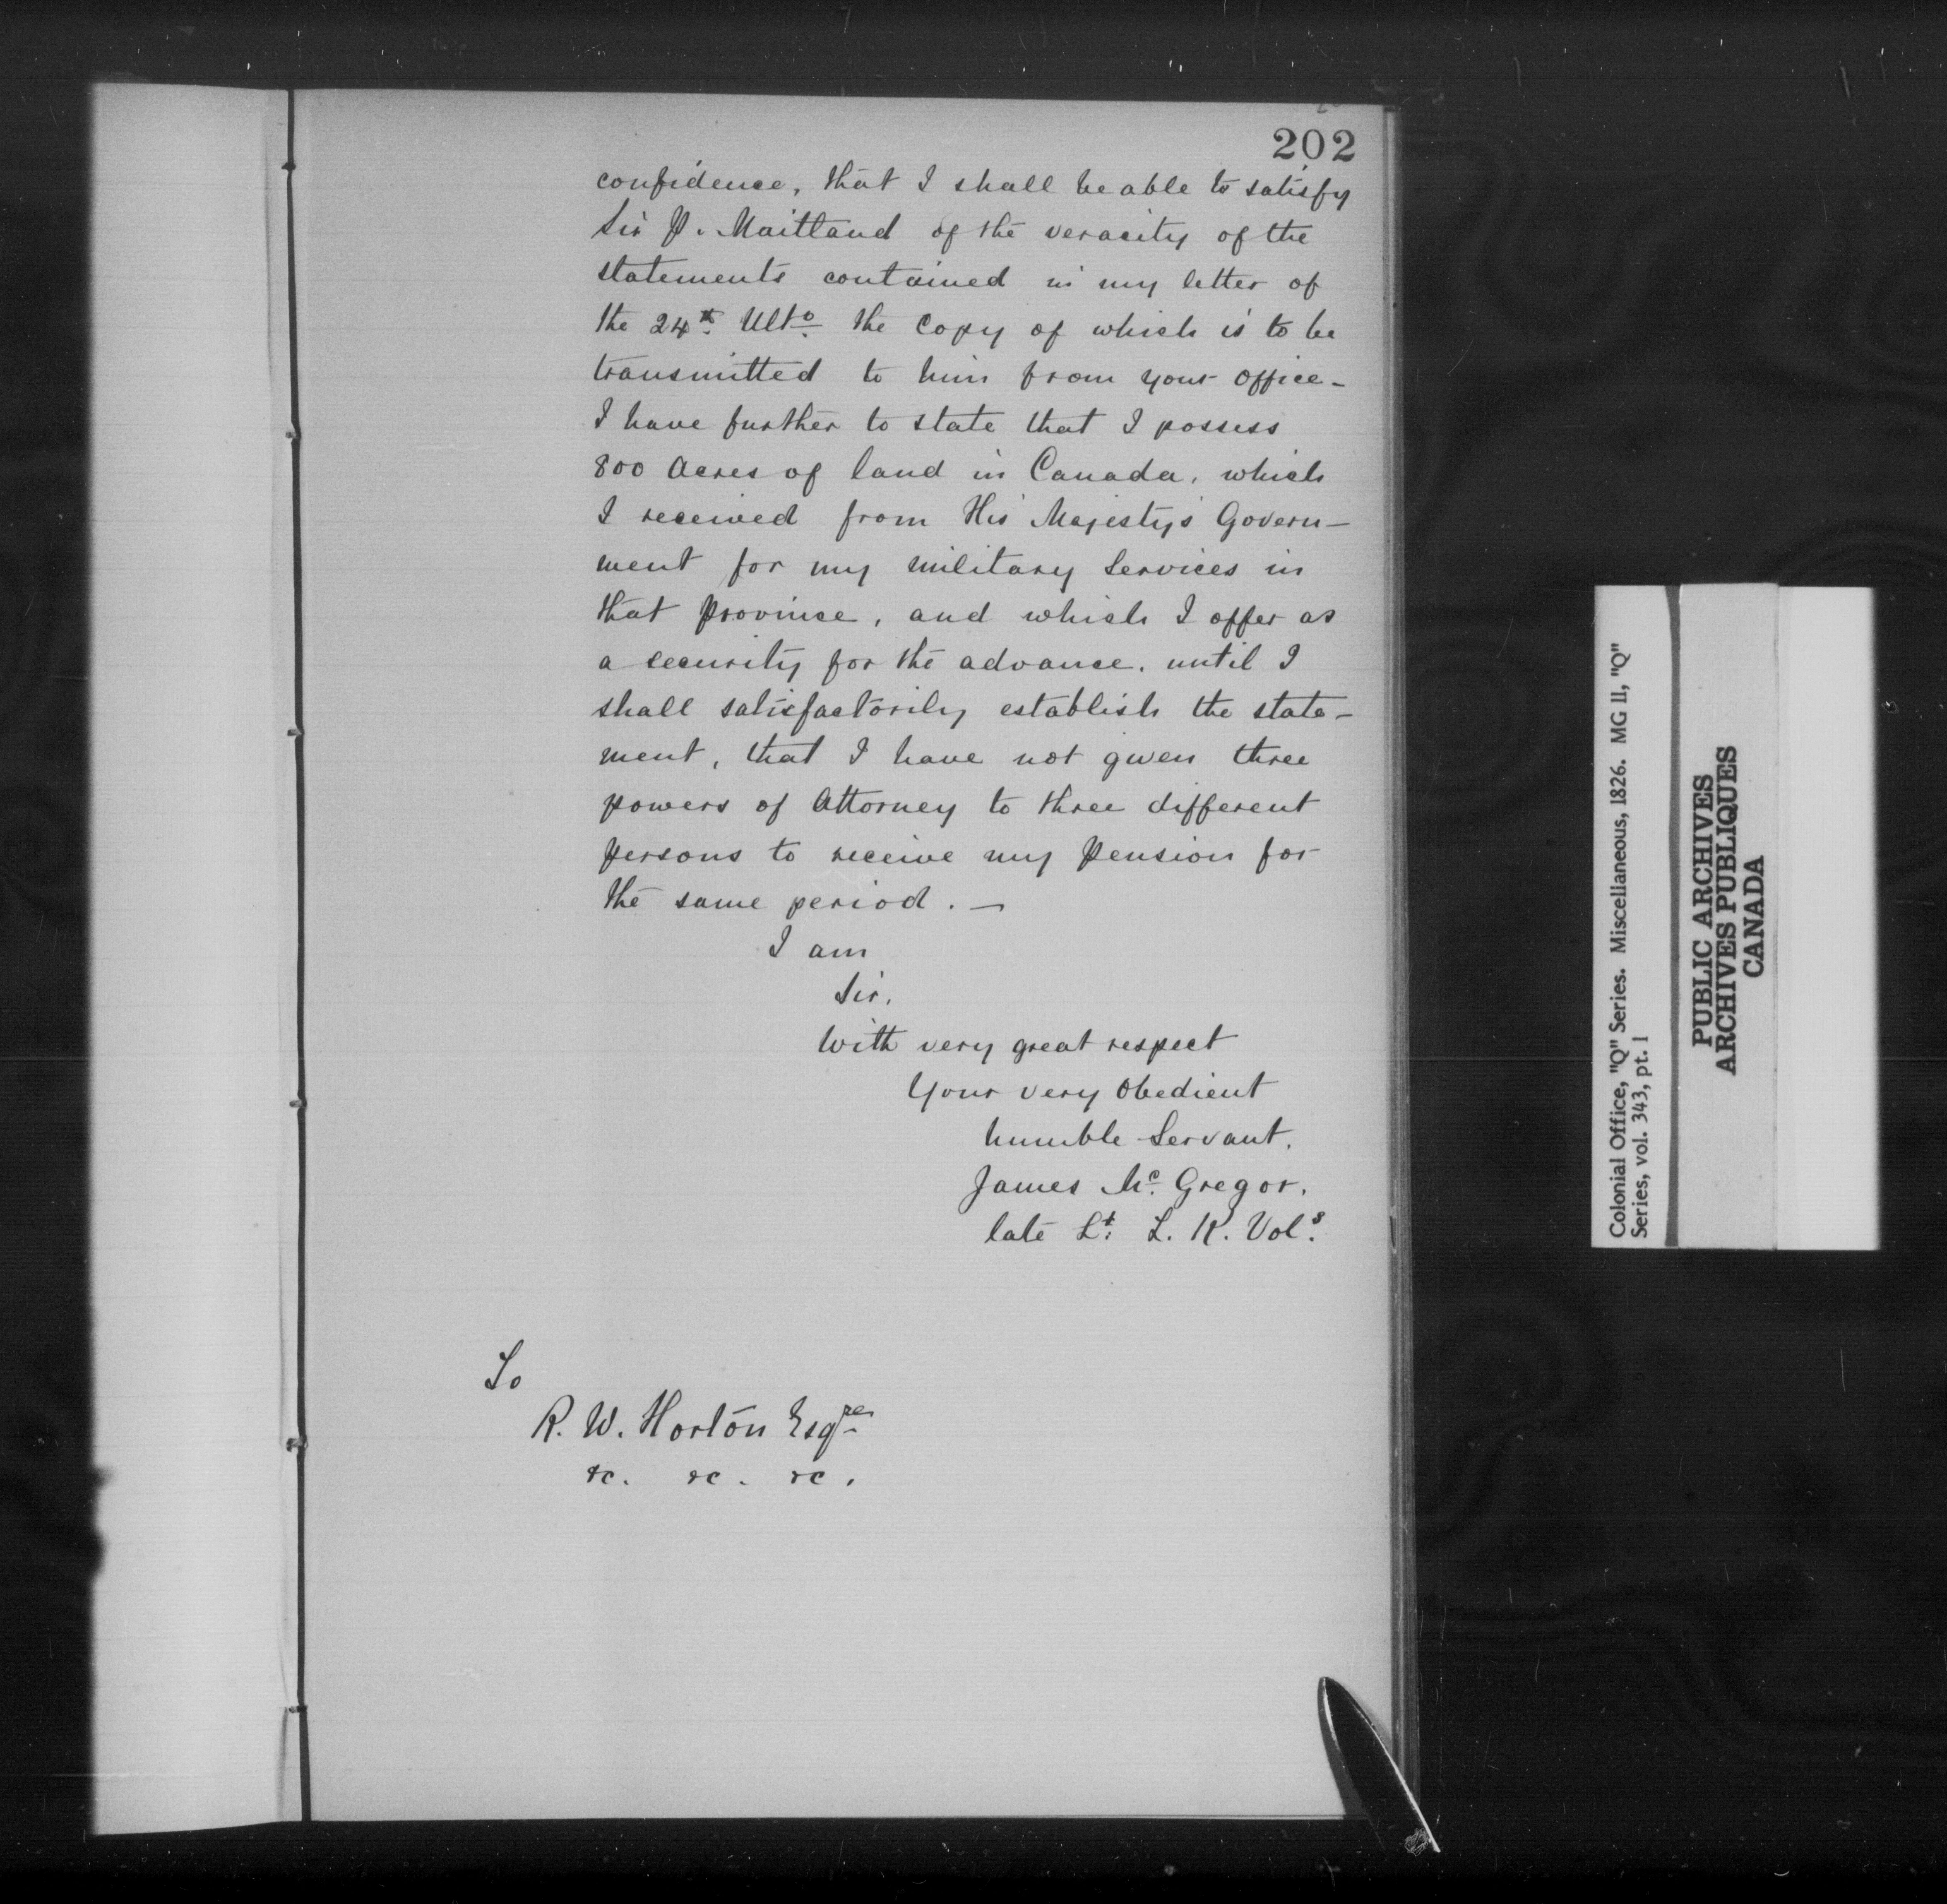 202
confidence, that I shall be able to satisfy
Sir P. Maitland of the veracity of the
statements contained in my letter of
the 24th Ulto the Copy of which is to be
transmitted to him from your Office -
I have further to state that I possess
800 Acres of land in Canada, which
I received from His Majesty's Govern-
ment for my military Services in
that Province, and which I offer as
a security for the advance. until I
shall satisfactorily establish the state-
ment, that I have not given three
powers of Attorney to three different
persons to receive my Pension for
the same period. -
I am
Sir,
With very great respect
Your very Obedient
humble Servant.
James Mc Gregor.
late Lt: L. K. Vols.
To
R. W. Horton Esqre
&c. &c. &c.
Colonial Office, "Q" Series. Miscellaneous, 1826. MG 11, "Q"
Series, vol. 343, pt. 1
PUBLIC ARCHIVES
ARCHIVES PUBLIQUES
CANADA